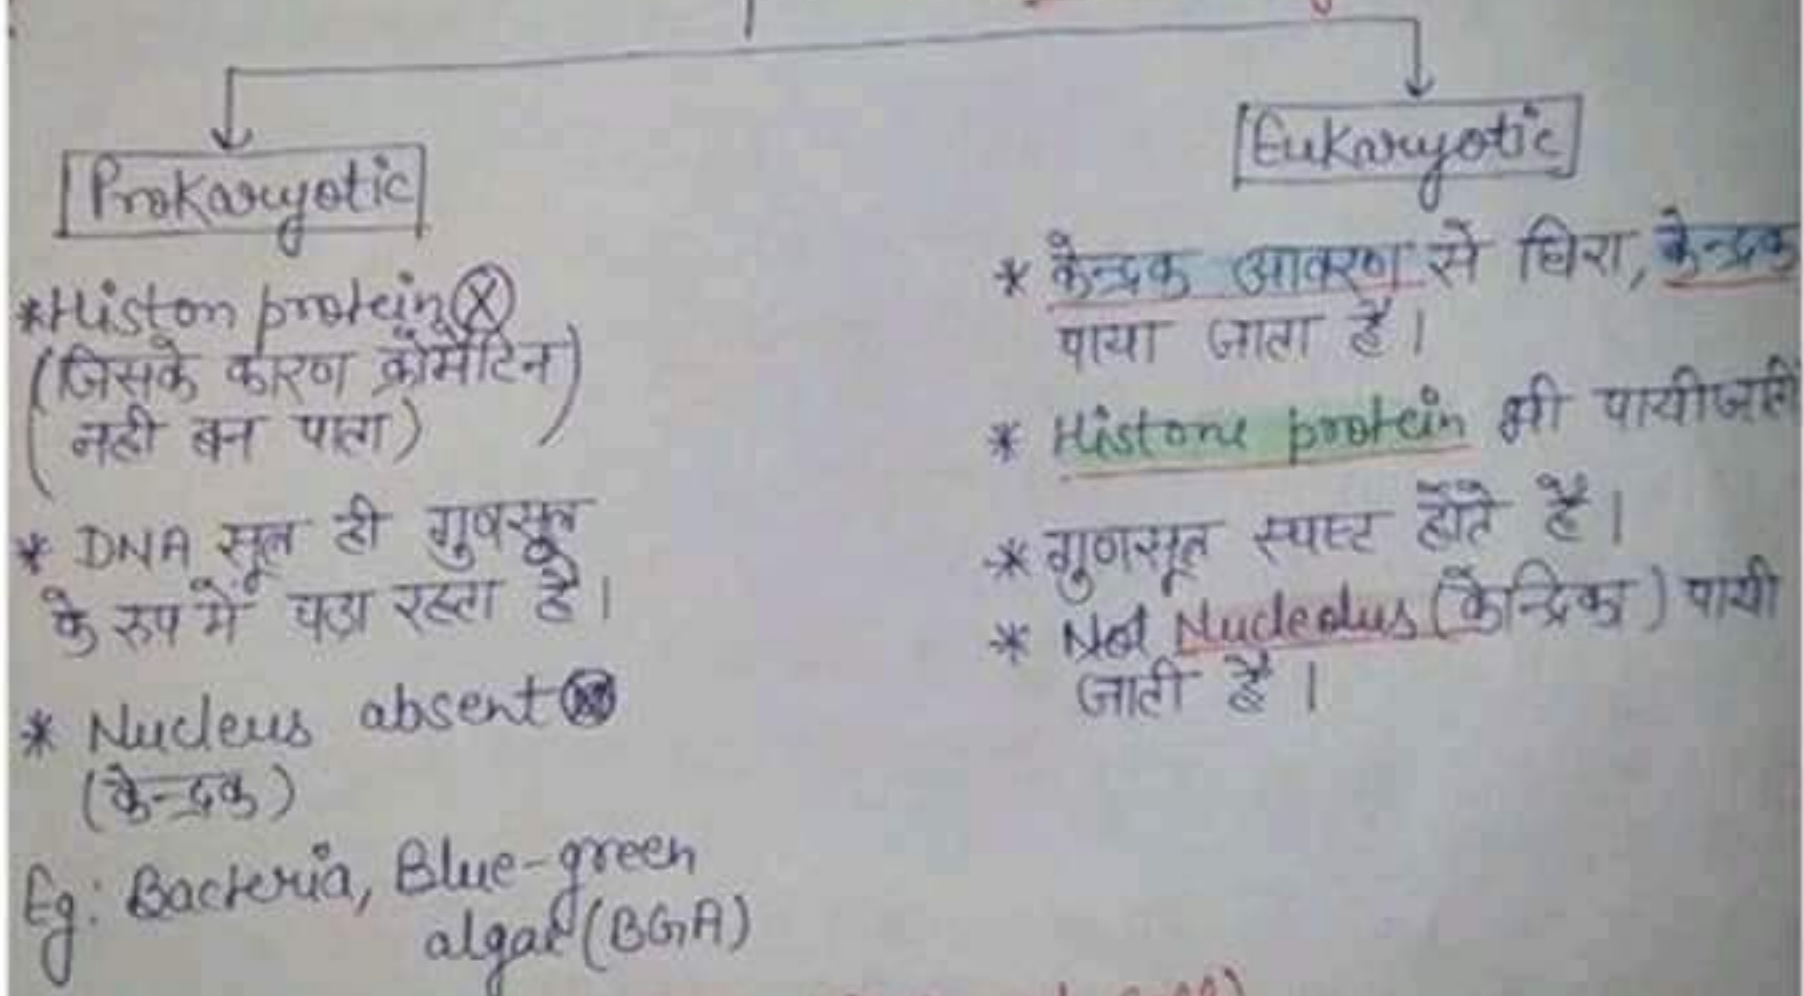 Prokaryotic
*Histon protein ⓧ
(जिसके कारण क्रोमैटिन
नही बन पाता)
* DNA सूत्र ही गुणसूत्र
के रुप में पडा रहता है।
* Nucleus absent
(केन्द्रक)
Eg: Bacteria, Blue-green
algae (BGA)
Eukaryotic
* केन्द्रक आवरण से घिरा, केन्द्रक
पाया जाता है।
* Histone protein भी पायी जाती
* गुणसूत्र स्पष्ट होते है।
* Nucleolus (केन्द्रिका) पायी
जाती है।